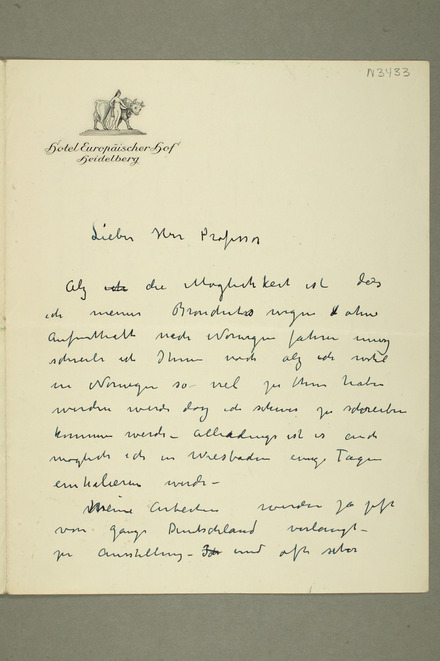 N3433
Hotel Europäischer-Hof
Heidelberg
Lieber Herr Professor
Alz die Möglichkeit ist das
ich meiner wegen ohne
Aufenthalt nach Norwegen fahren
schreibe ich Ihnen noch alz ich wohl
in Norwegen so viel zu thun haben
werden werde daz ich zu schreiben
kommen werde – Allerdings ist es auch
möglich ich in Wiesbaden einige Tagen
werde –
Meine Arbeiten werden ja jetzt
von ganze Deutschland verlangt –
zu Ausstellung – und oft